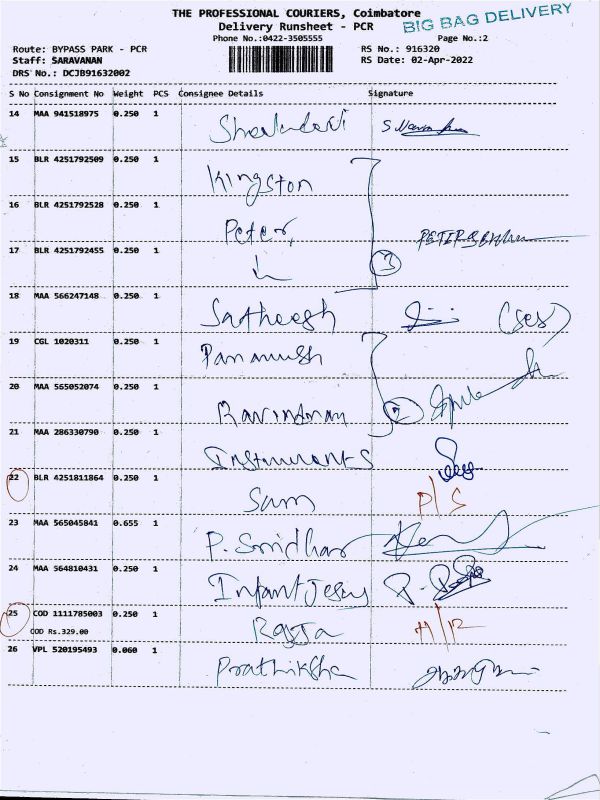 THE PROFESSIONAL COURIERS, Coimbatore
BIG BAG DELIVERY
Delivery Runsheet - PCR
Phone No.:0422-3505555 Page No.:2
Route: BYPASS PARK - PCR RS No.: 916320
Staff: SARAVANAN RS Date: 02-Apr-2022
DRS No.: DCJB91632002
S No Consignment No Weight PCS Consignee Details Signature
14 MAA 941518975 0.250 1
15 BLR 4251792509 0.250 1 Kingston
16 BLR 4251792528 0.250 1 Peter,
17 BLR 4251792455 0.250 1 3
18 MAA 566247148 0.250 1 Satheesh (Ses)
19 CGL 1020311 0.250 1
20 MAA 565052074 0.250 1 Ravindran 2
21 MAA 286330790 0.250 1 Instruments
22 BLR 4251811864 0.250 1 Sam P/S
23 MAA 565045841 0.655 1 P. Sridhar
24 MAA 564810431 0.250 1 Infant Jesus
25 COD 1111785003 0.250 1 Raja H/R
COD Rs.329.00
26 VPL 520195493 0.060 1 Prathiksha